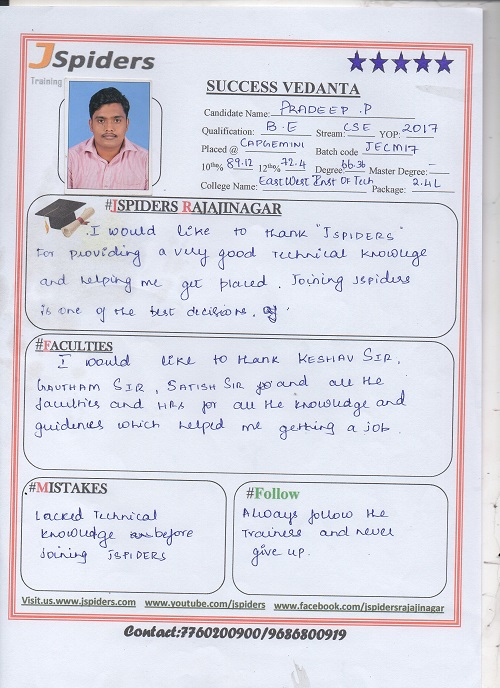 JSpiders
Training
SUCCESS VEDANTA
Candidate Name: PRADEEP .P
Qualification: B.E Stream: CSE YOP: 2017
Placed @ CAPGEMINI Batch code JECM17
10th% 89.12 12th% 72.4 Degree: 66.36 Master Degree: –
College Name: East West Inst Of Tech Package: 2.4L
#JSPIDERS RAJAJINAGAR
I would like to thank "JSPIDERS"
for providing a very good technical knowluge
and helping me get placed. Joining JSpiders
is one of the best decisions.
#FACULTIES
I would like to thank KESHAV SIR,
GAUTHAM SIR, SATISH SIR and all the
faculties and HRs for all the knowludge and
guidences which helped me getting a job.
#MISTAKES
Lacked Technical
knowledge before
joining JSPIDERS
#Follow
Always follow the
trainers and never
give up.
Visit.us.www.jspiders.com www.youtube.com/jspiders www.facebook.com/jspidersrajajinagar
Contact:7760200900/9686800919